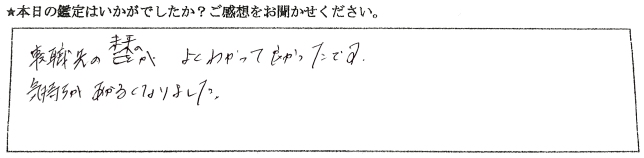 ★本日の鑑定はいかがでしたか？ご感想をお聞かせください。
転職先の ことが よくわかって良かったです.
気持ちが あかるくなりました。